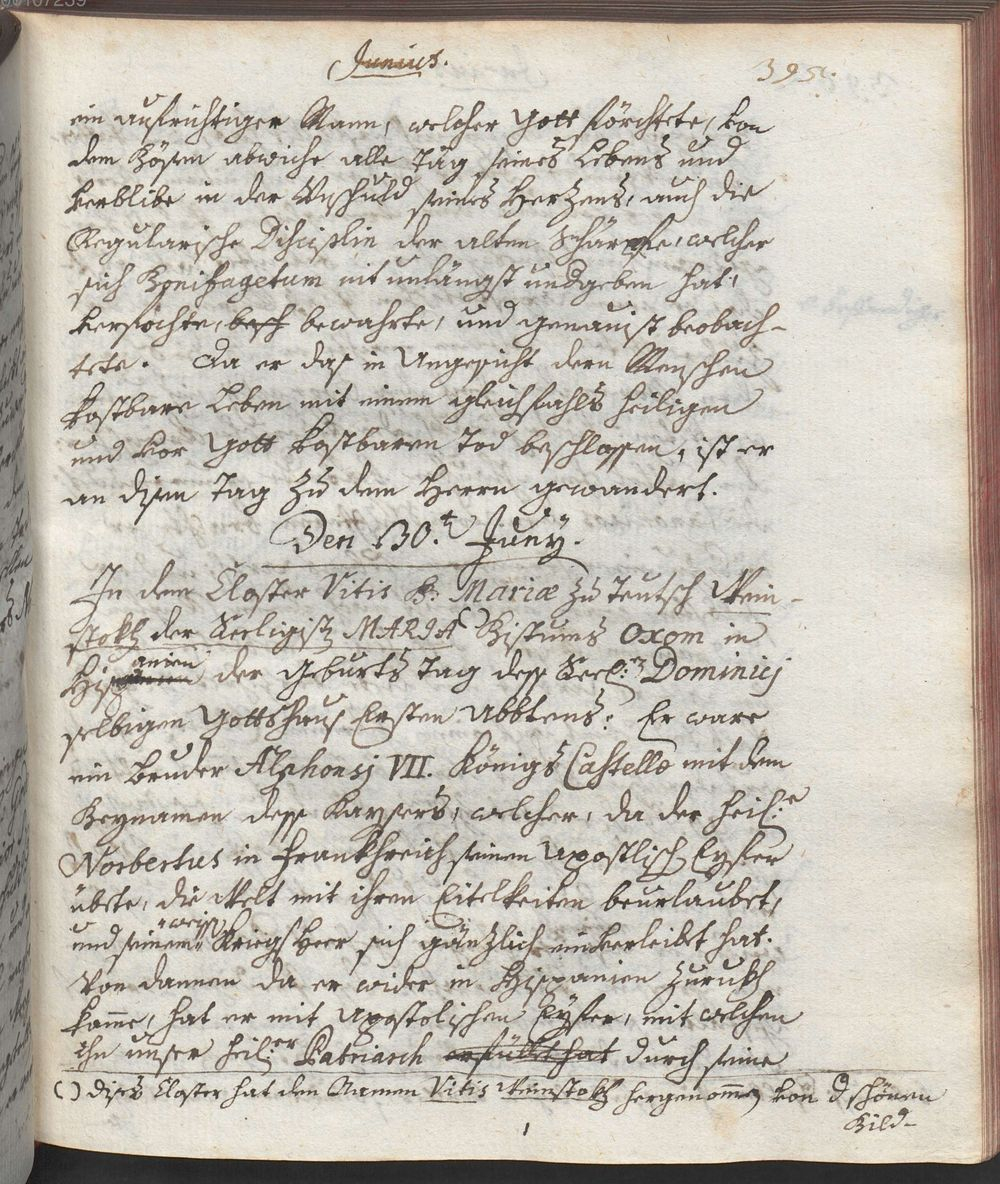 Junius. 395.
ein aufrichtiger Mann, welcher Gott förchtete, von
dem Bösen abwiche alle Täg seines Lebens und
verblibe in der Unschuld seines Hertzens, auch die
Regularische Disciplin der alten Schärpfe, welcher
sich nit unlängst undgeben hat,
versöchte, besch bewahrte, und genauist beobach-
tete. Da er das in Angesicht dern Menschen
kostbare Leben mit einem gleichfahls heiligen
und vor Gott kostbaren Tod beschlossen, ist er
an disem Tag zu dem Herrn gewandert.
Den 30.t Juny.
In dem Closter Vitis B. Mariæ zu Teutsch Wein-
stokh der Seeligist MARIA () Bistums Oxom in
Hispanien der Geburts Tag dess Seel: Dominicj
selbigen Gottshaus Ersten Abbtens. Er ware
ein Bruder Alphonsj VII. Königs Castellæ mit dem
Beynamen dess Kaysers, welcher, da der heil:e
Norbertus in Frankhreich seinen Apostlisch Eyfer
übete, die Welt mit ihren Eitelkeiten beurlaubet,
und seinem weiss Kriegs Heer sich gäntzlich einverleibt hat.
Von dannen da er wider in Hispanien zurukh
kame, hat er mit Apostolischen Eyfer, mit welchen
ihn unser heil:er Patriarch erfüllet hat durch seine
() dises Closter hat den Namen Vitis Weinstokh hergenommen von d schönen
Bild-